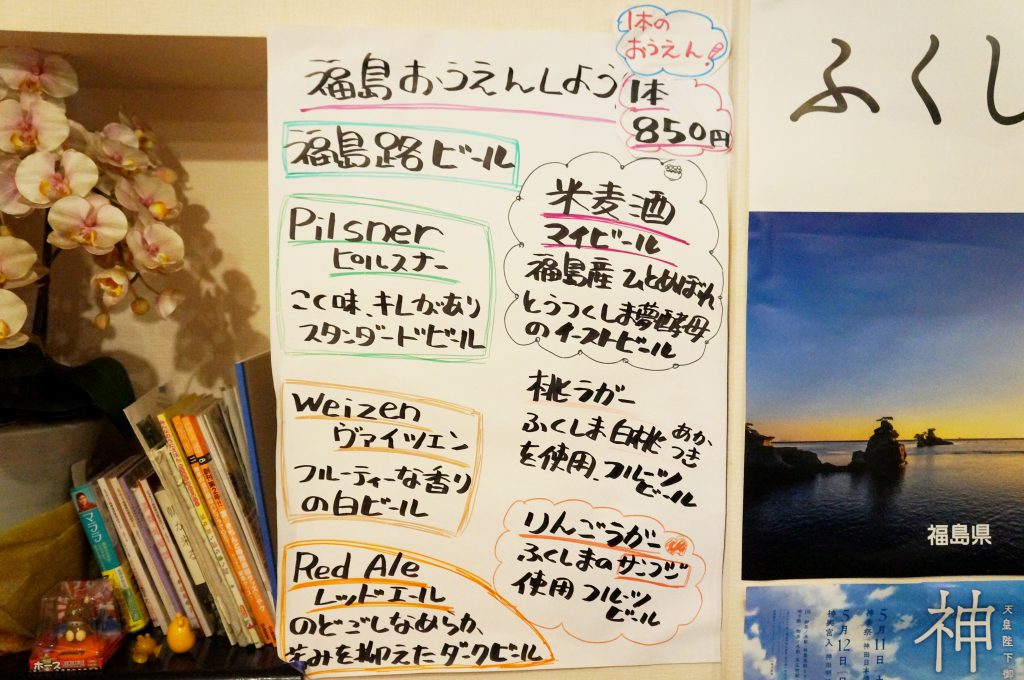 1本の
おうえん!
福島おうえんしよう
1本
850円
福島路ビール
Pilsner
ピルスナー
こく味、キレがあり
スタンダードビール
Weizen
ヴァイツェン
フルーティーな香り
の白ビール
Red Ale
レッドエール
のどごしなめらか、
苦みを抑えたダークビール
米麦酒
マイビール
福島産ひとめぼれ
とうつくしま夢酵母
のイーストビール
桃ラガー
ふくしま白桃あかつき
を使用、フルーツ
ビール
りんごラガー
ふくしまのサンフジ
使用フルーツ
ビール
ふくし
福島県
神
天皇陛下御
5月11日
5月12日
マララ
ホース